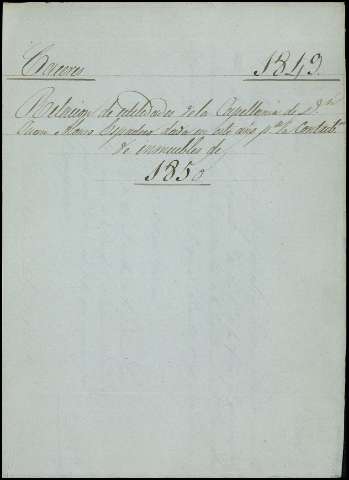 Caceres 1849.
Relacion de utilidades de la Capellania de D.n
Juan Alonso dada en este año p.a la Contrib.n
de inmuebles de
1850